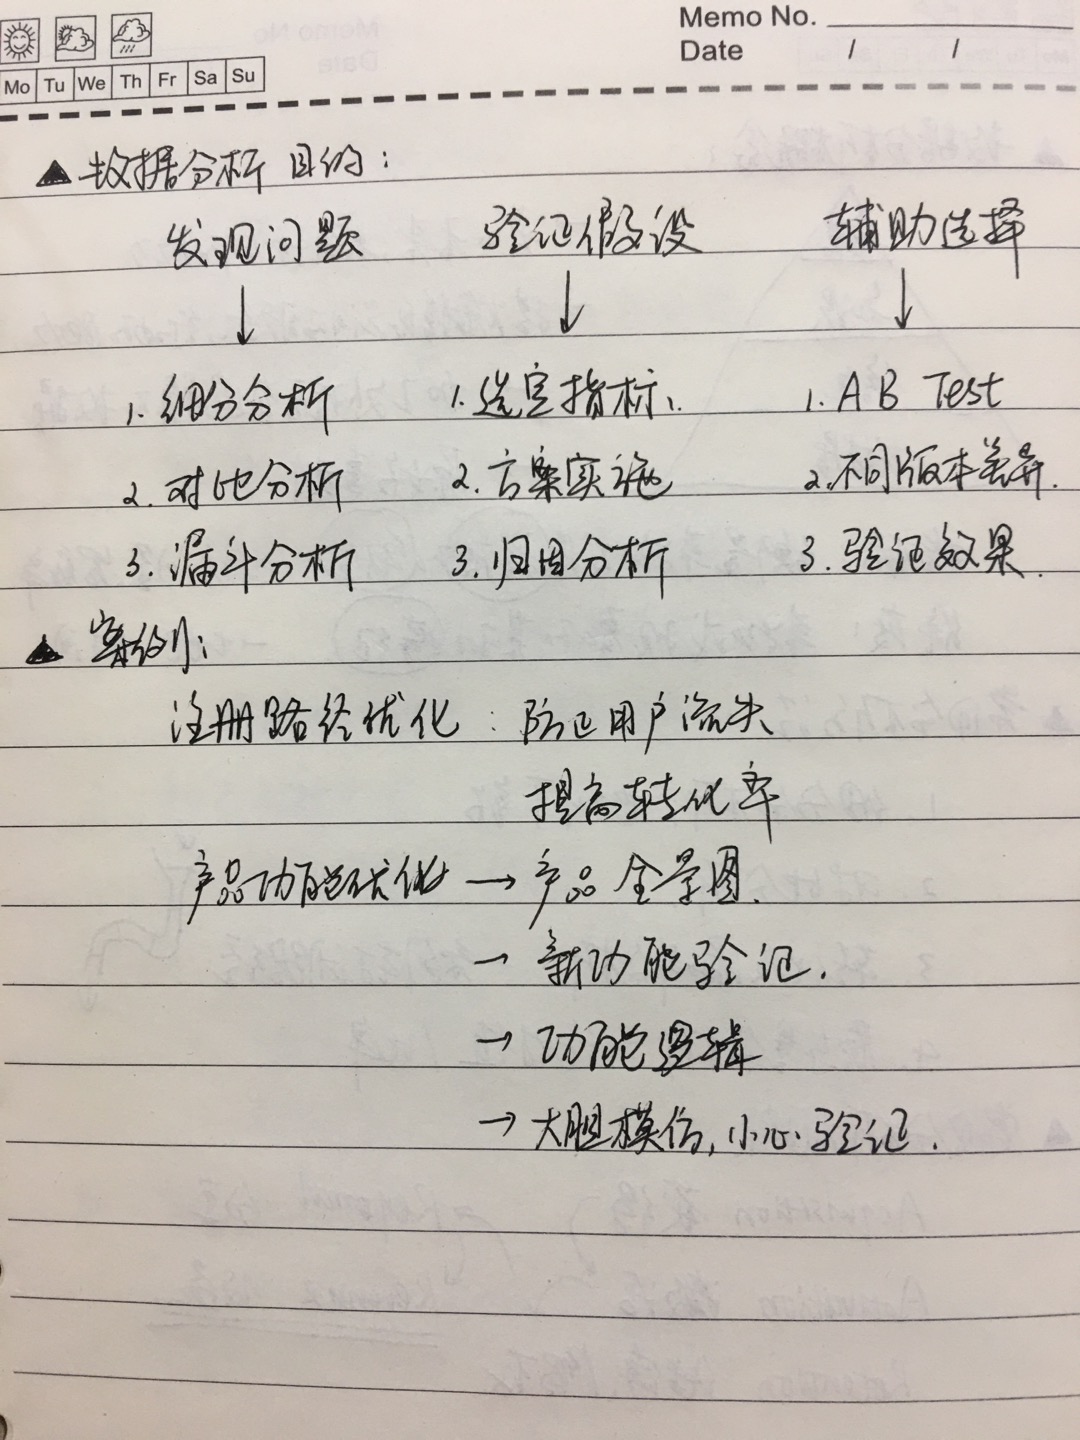 Memo No.
Date / /
Mo Tu We Th Fr Sa Su
▲ 数据分析目的:
发现问题 验证假设 辅助选择
↓ ↓ ↓
1. 细分分析 1. 选定指标、 1. AB Test
2. 对比分析 2. 方案实施 2. 不同版本差异.
3. 漏斗分析 3. 归因分析 3. 验证效果.
▲ 案例:
注册路径优化 : 防止用户流失
提高转化率
产品功能优化 → 产品全景图.
→ 新功能验证.
→ 功能逻辑
→ 大胆模仿, 小心验证.